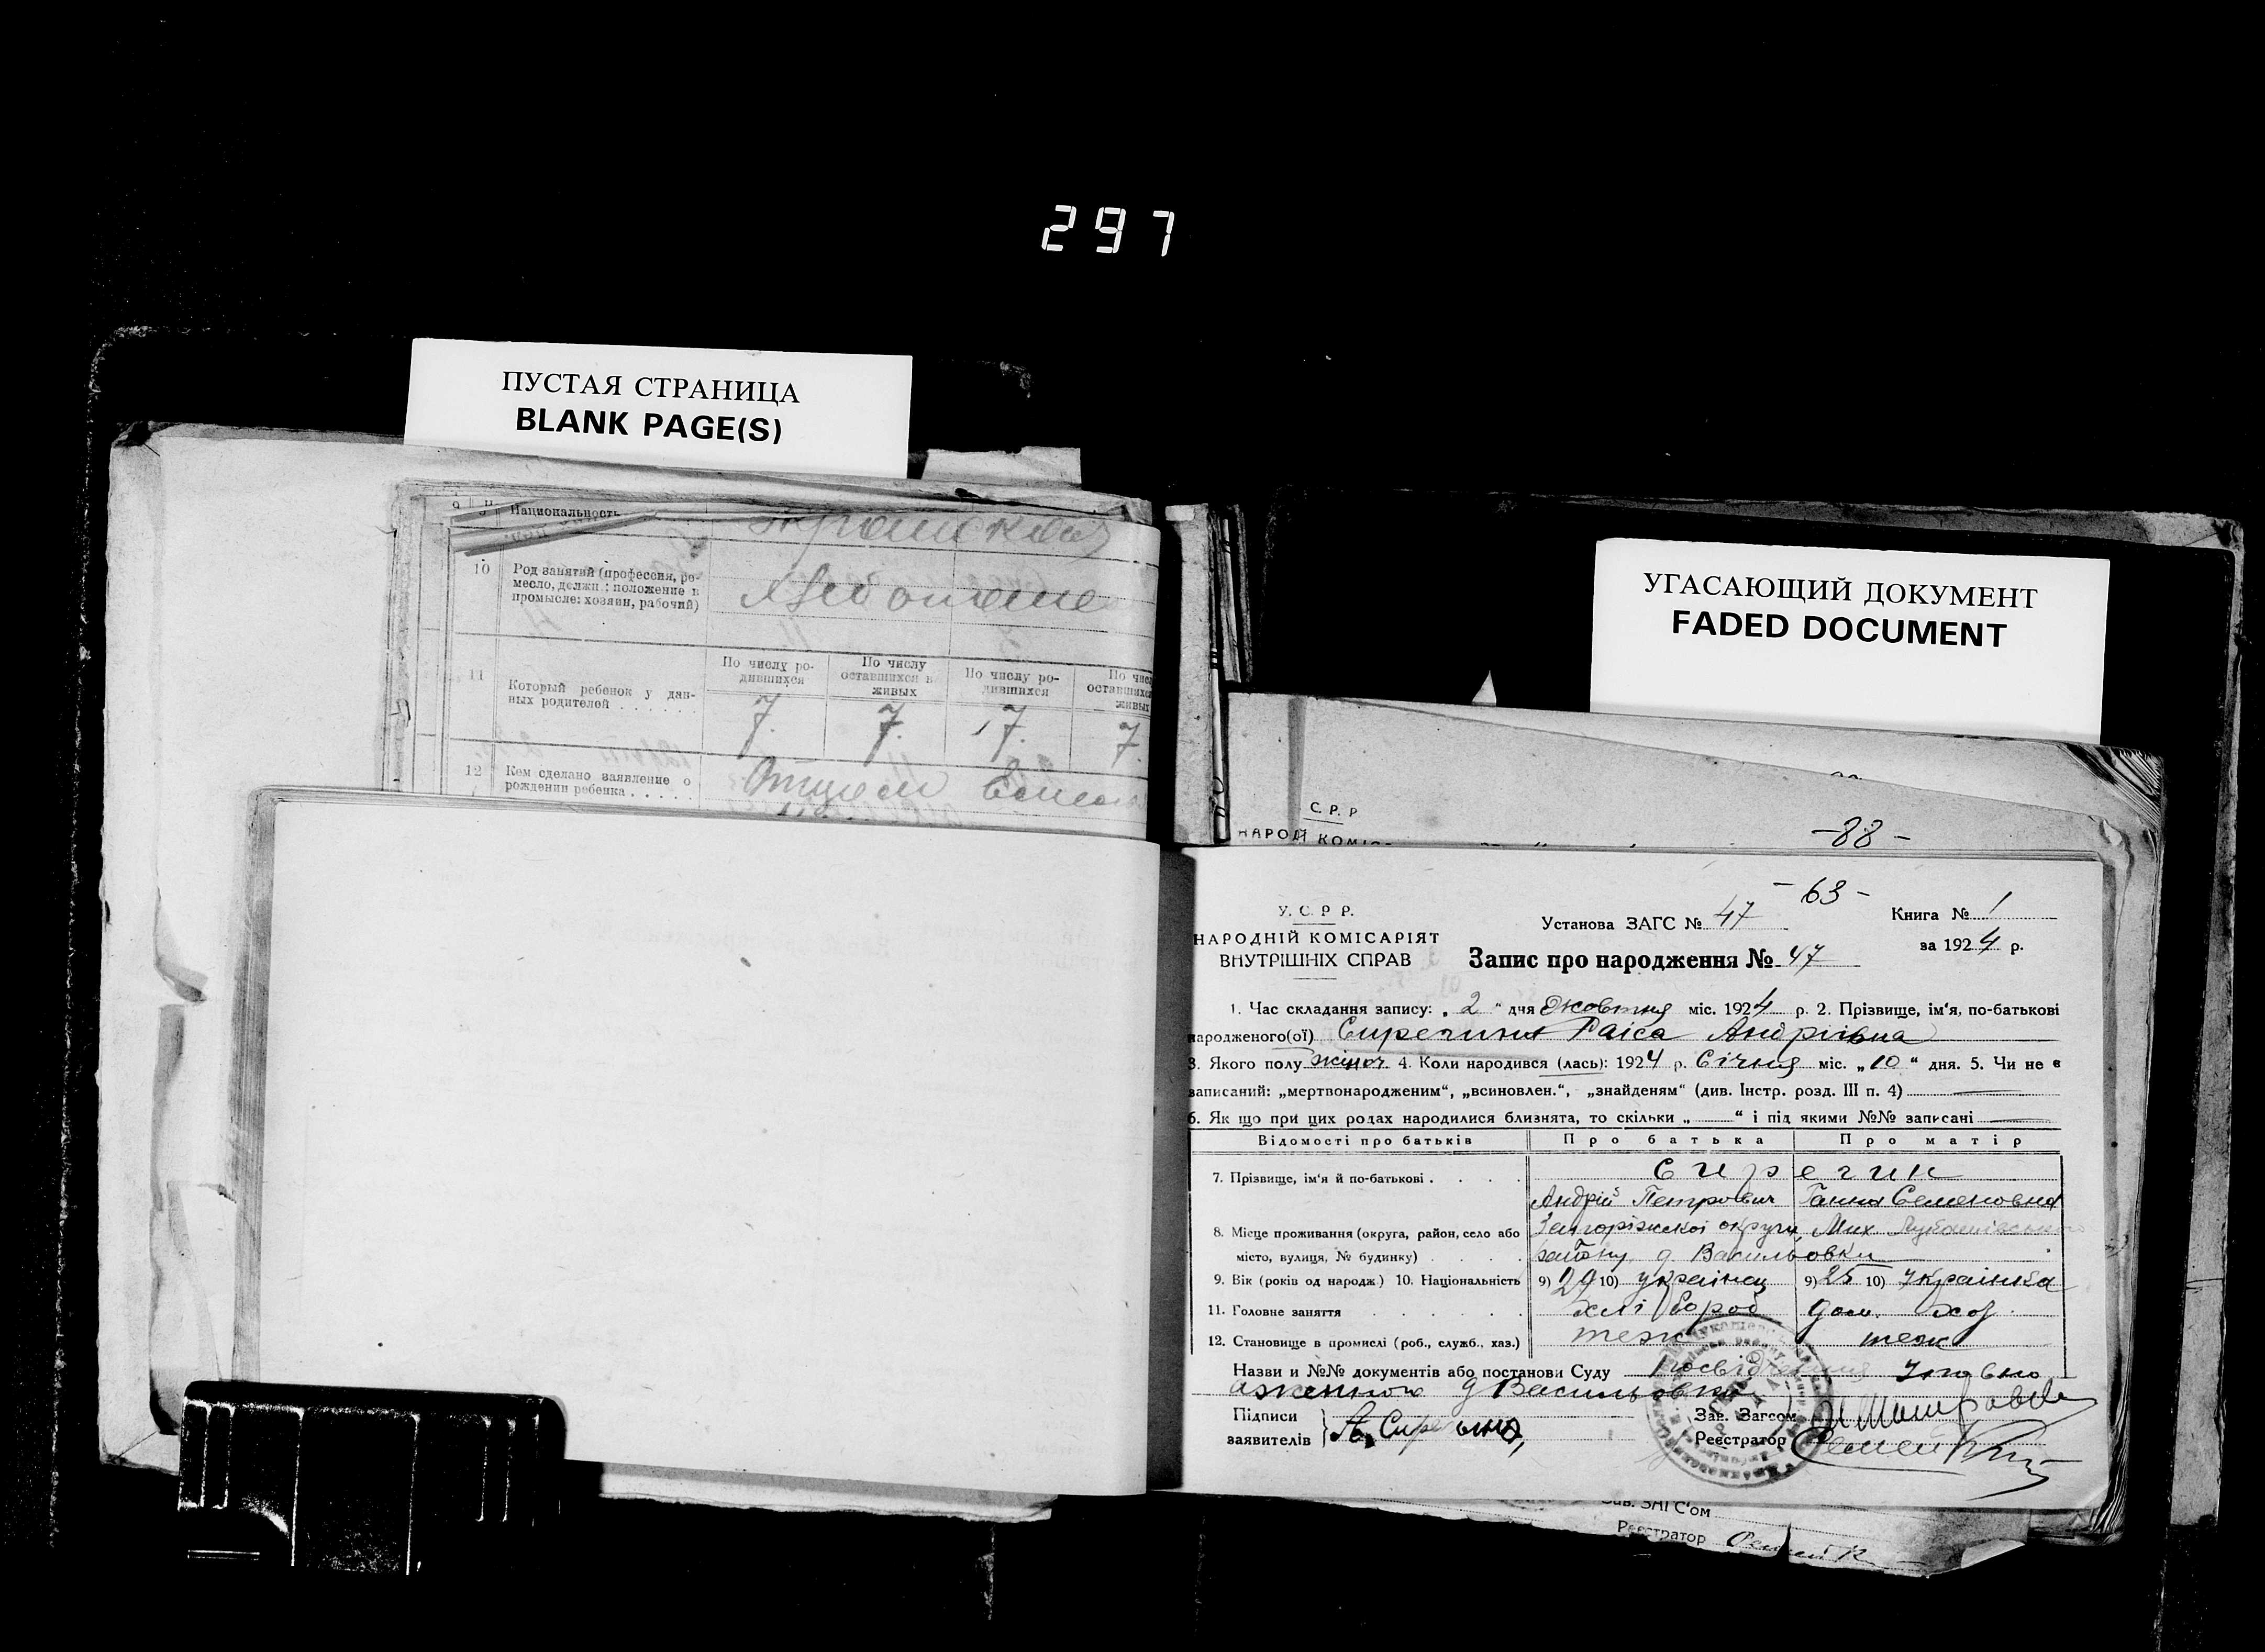 297
ПУСТАЯ СТРАНИЦА
BLANK PAGE(S)
Национальность
10 Род занятий (профессия, ре-
месло, должн.: положение в
промысле: хозяин, рабочий)
По числу ро-
дившихся
По числу
оставшихся в
живых
По числу ро-
дившихся
11 Который ребенок у дан-
ных родителей . . . . . .
7. 7. 7. 7.
12 Кем сделано заявление о
рождении ребенка . . . . .
Отцом
УГАСАЮЩИЙ ДОКУМЕНТ
FADED DOCUMENT
С. Р. Р
-88-
-63-
У. С. Р Р.
НАРОДНІЙ КОМІСАРІЯТ
ВНУТРІШНІХ СПРАВ
Установа ЗАГС № 47
Книга № 1
за 1924 р.
Запис про народження № 47
1. Час складання запису: „2“ дня Жовтня міс. 1924 р. 2. Прізвище, ім'я, по-батькові
народженого(ої) Раіса Андріівна
3. Якого полу жіноч 4. Коли народився (лась): 1924 р. Січня міс. „10“ дня. 5. Чи не є
записаний: „мертвонародженим“, „всиновлен.“, „знайденям“ (див. Інстр. розд. III п. 4)
6. Як що при цих родах народилися близнята, то скільки „ “ і під якими №№ записані
Відомості про батьків Про батька Про матір
7. Прізвище, ім'я й по-батькові . . . . Сиречин
Андрій Петрович Ганна Семеновна
8. Місце проживання (округа, район, село або Запоріжскоі округи, Мих.
місто, вулиця, № будинку) . . . . району, д Васильовки
9. Вік (років од народж.) 10. Національність 9) 29 10) украінец 9) 25 10) Украінка
11. Головне заняття . . . . . хліборob дом. хоз
12. Становище в промислі (роб., служб., хаз.) теж теж
Назви и №№ документів або постанови Суду посвідчення Уповно
аженного д Васильовки
Підписи
заявителів
Зав. Загсом
Реєстратор
Зав. ЗАГС'ом
Реєстратор